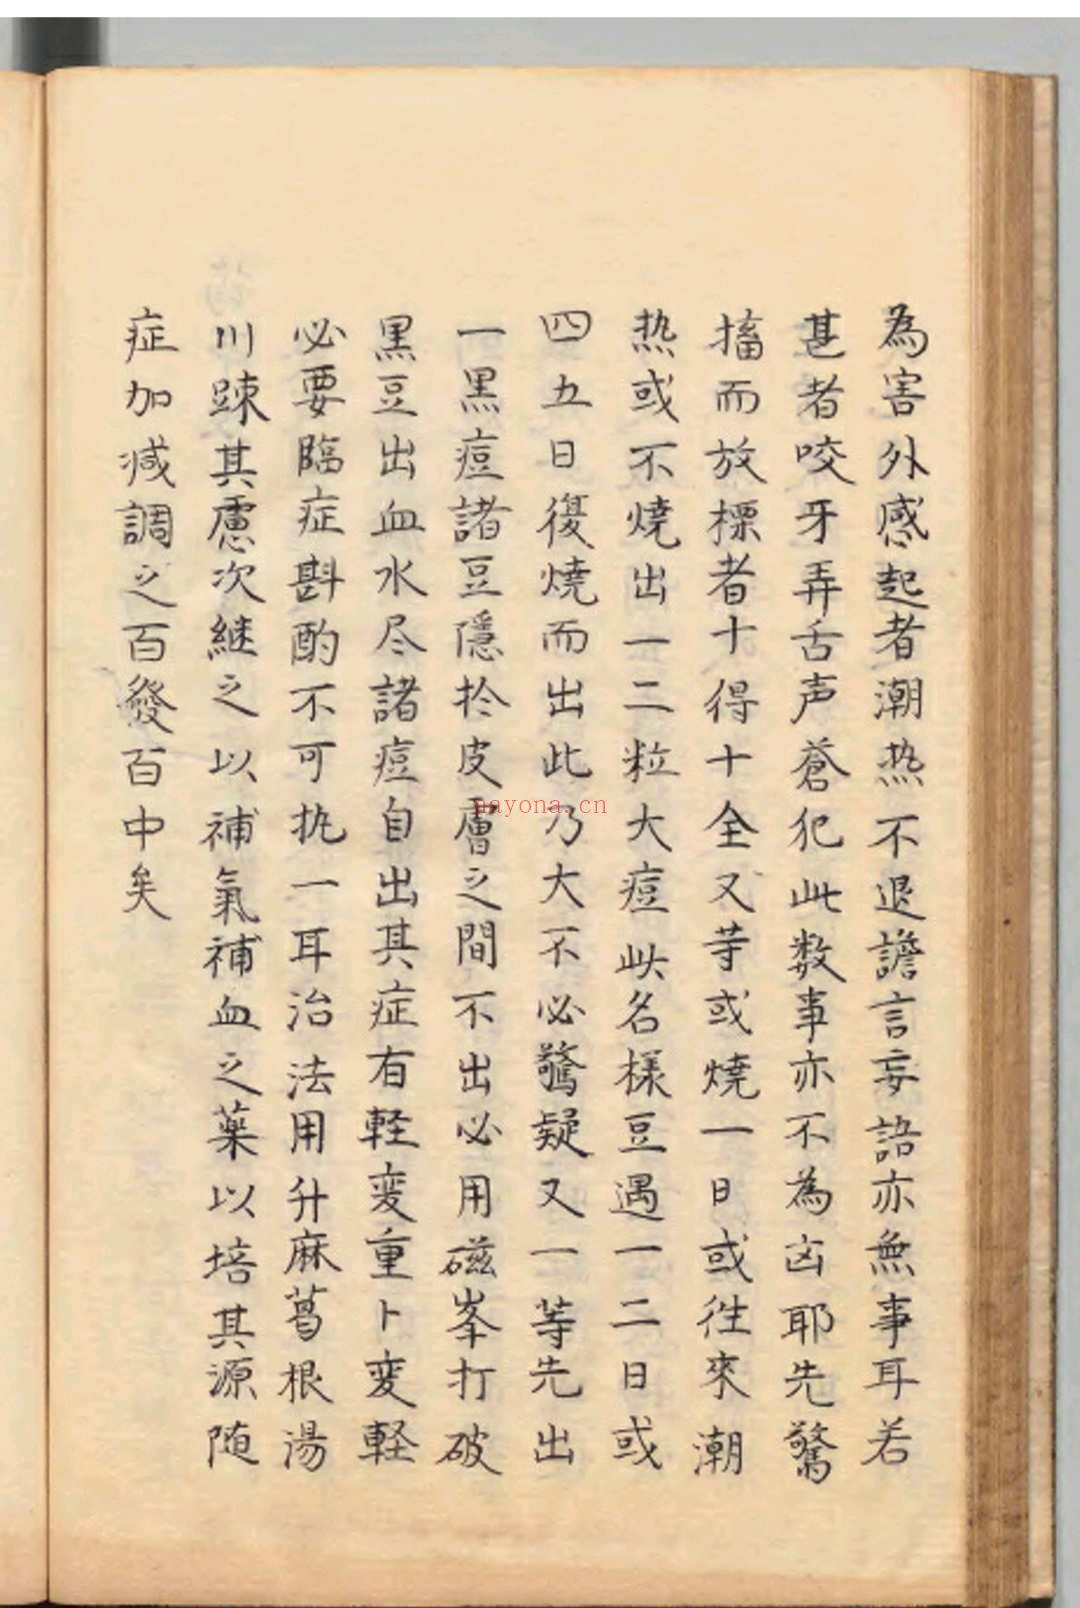 為害外感起者潮热不退譫言妄語亦無事耳若
甚者咬牙弄舌声蒼犯此数事亦不為凶耶先驚
搐而放標者十得十全又等或燒一日或往來潮
热或不燒出一二粒大痘此名樣豆遇一二日或
四五日復燒而出此乃大不必驚疑又一等先出
一黑痘諸豆隱扵皮膚之間不出必用磁峯打破
黑豆出血水尽諸痘自出其症有軽変重卜変軽
必要臨症斟酌不可执一耳治法用升麻葛根湯
川踈其慮次継之以補氣補血之藥以培其源随
症加减調之百發百中矣
nayona.cn